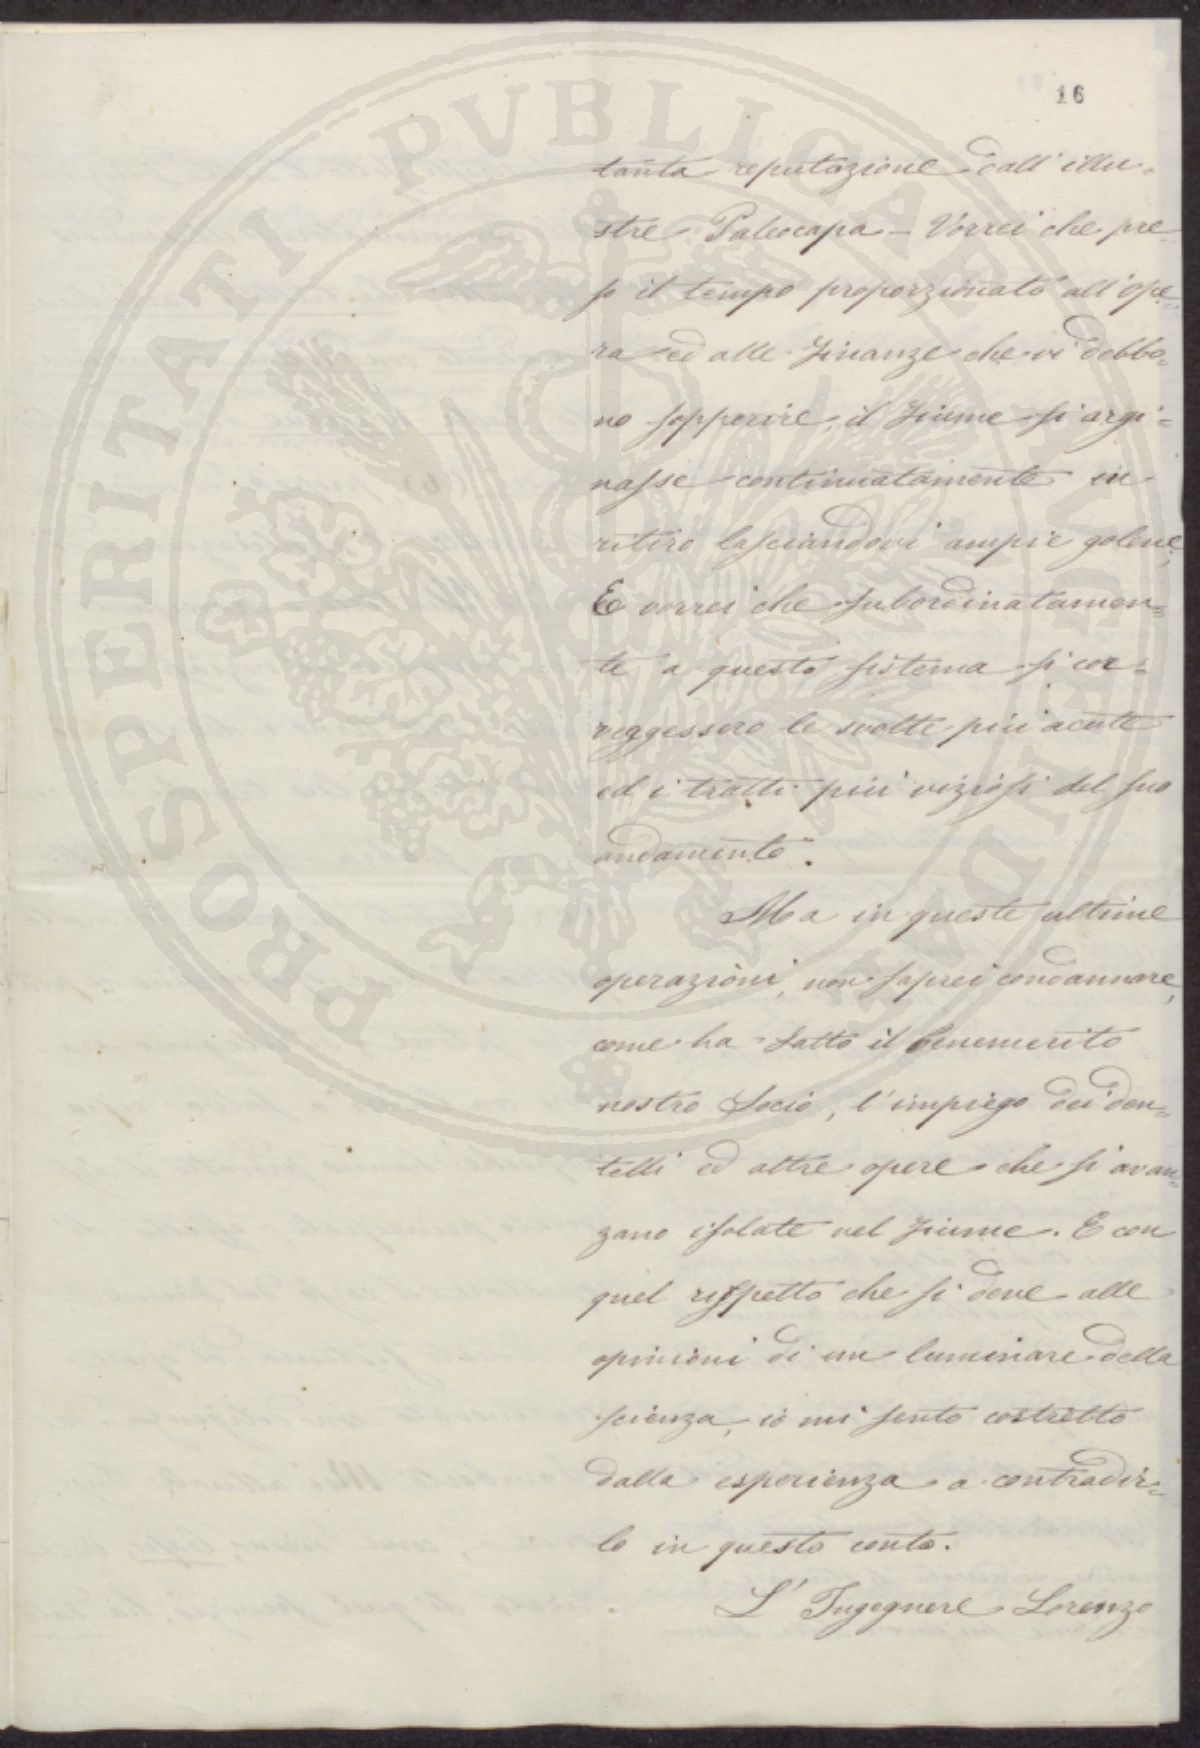 16
tanta reputazione dall' illu-
stre Paleocapa - Vorrei che pre
so il tempo proporzionato all' ope-
ra ed alle finanze che vi debbo-
no sopperire, il fiume si argi-
nasse continuatamente in
ritiro lasciandovi ampie golene,
E vorrei che subordinatamen-
te a questo sistema si cor-
reggessero le svolte più acute
ed i tratti più viziosi del suo
andamento.
Ma in queste ultime
operazioni, non saprei condannare,
come ha fatto il benemerito
nostro Socio, l'impiego dei den-
telli ed altre opere che si avan-
zano isolate nel fiume. E con
quel rispetto che si deve alle
opinioni di un luminare della
scienza, io mi sento costretto
dalla esperienza a contradir-
lo in questo conto.
L' Ingegnere Lorenzo
PROSPERITATI PVBLICAE AVGENDAE